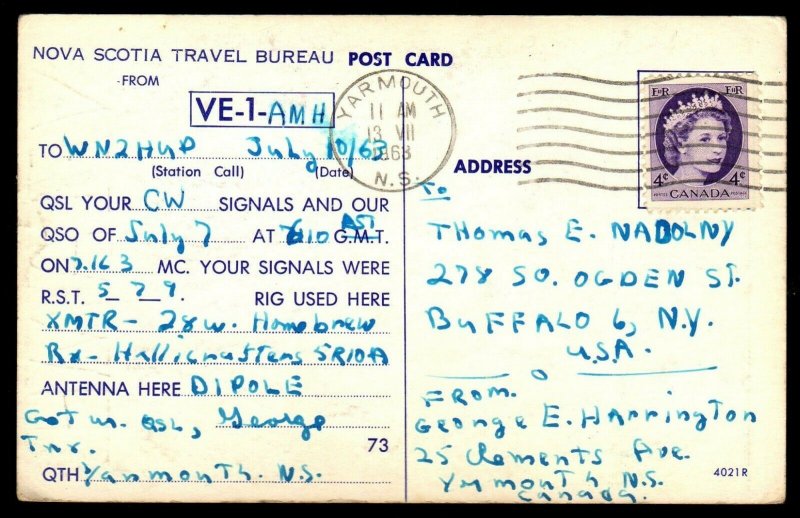 NOVA SCOTIA TRAVEL BUREAU POST CARD
FROM
VE-1-AMH
TO WN2HUP July 10/63
(Station Call) (Date)
QSL YOUR CW SIGNALS AND OUR
QSO OF July 7 AT 610 AST G.M.T.
ON 7.163 MC. YOUR SIGNALS WERE
R.S.T. 5 7 9. RIG USED HERE
XMTR - 28w. Homebrew
Rx - Hallicrafters SR10A
ANTENNA HERE DIPOLE
Got ur QSL, George
Tnx.
73
QTH Yarmouth. N.S.
YARMOUTH
11 AM
13 VII
1963
N.S.
E II R E II R
4¢ CANADA 4¢
POSTES POSTAGE
ADDRESS
To
THOMAS E. NADOLNY
278 SO. OGDEN ST.
BUFFALO 6, N.Y.
U.S.A.
FROM.
GEORGE E. HARRINGTON
25 Clements Ave.
Yarmouth, N.S.
Canada.
4021R